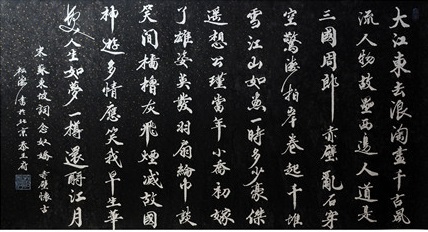 大江東去浪淘盡千古風
流人物故壘西邊人道是
三國周郎赤壁亂石穿
空驚濤拍岸卷起千堆
雪江山如畫一時多少豪傑
遙想公瑾當年小喬初嫁
了雄姿英發羽扇綸巾談
笑間檣櫓灰飛煙滅故國
神遊多情應笑我早生華
髮人生如夢一樽還酹江月
宋蘇東坡詞念奴嬌赤壁懷古
書於北京